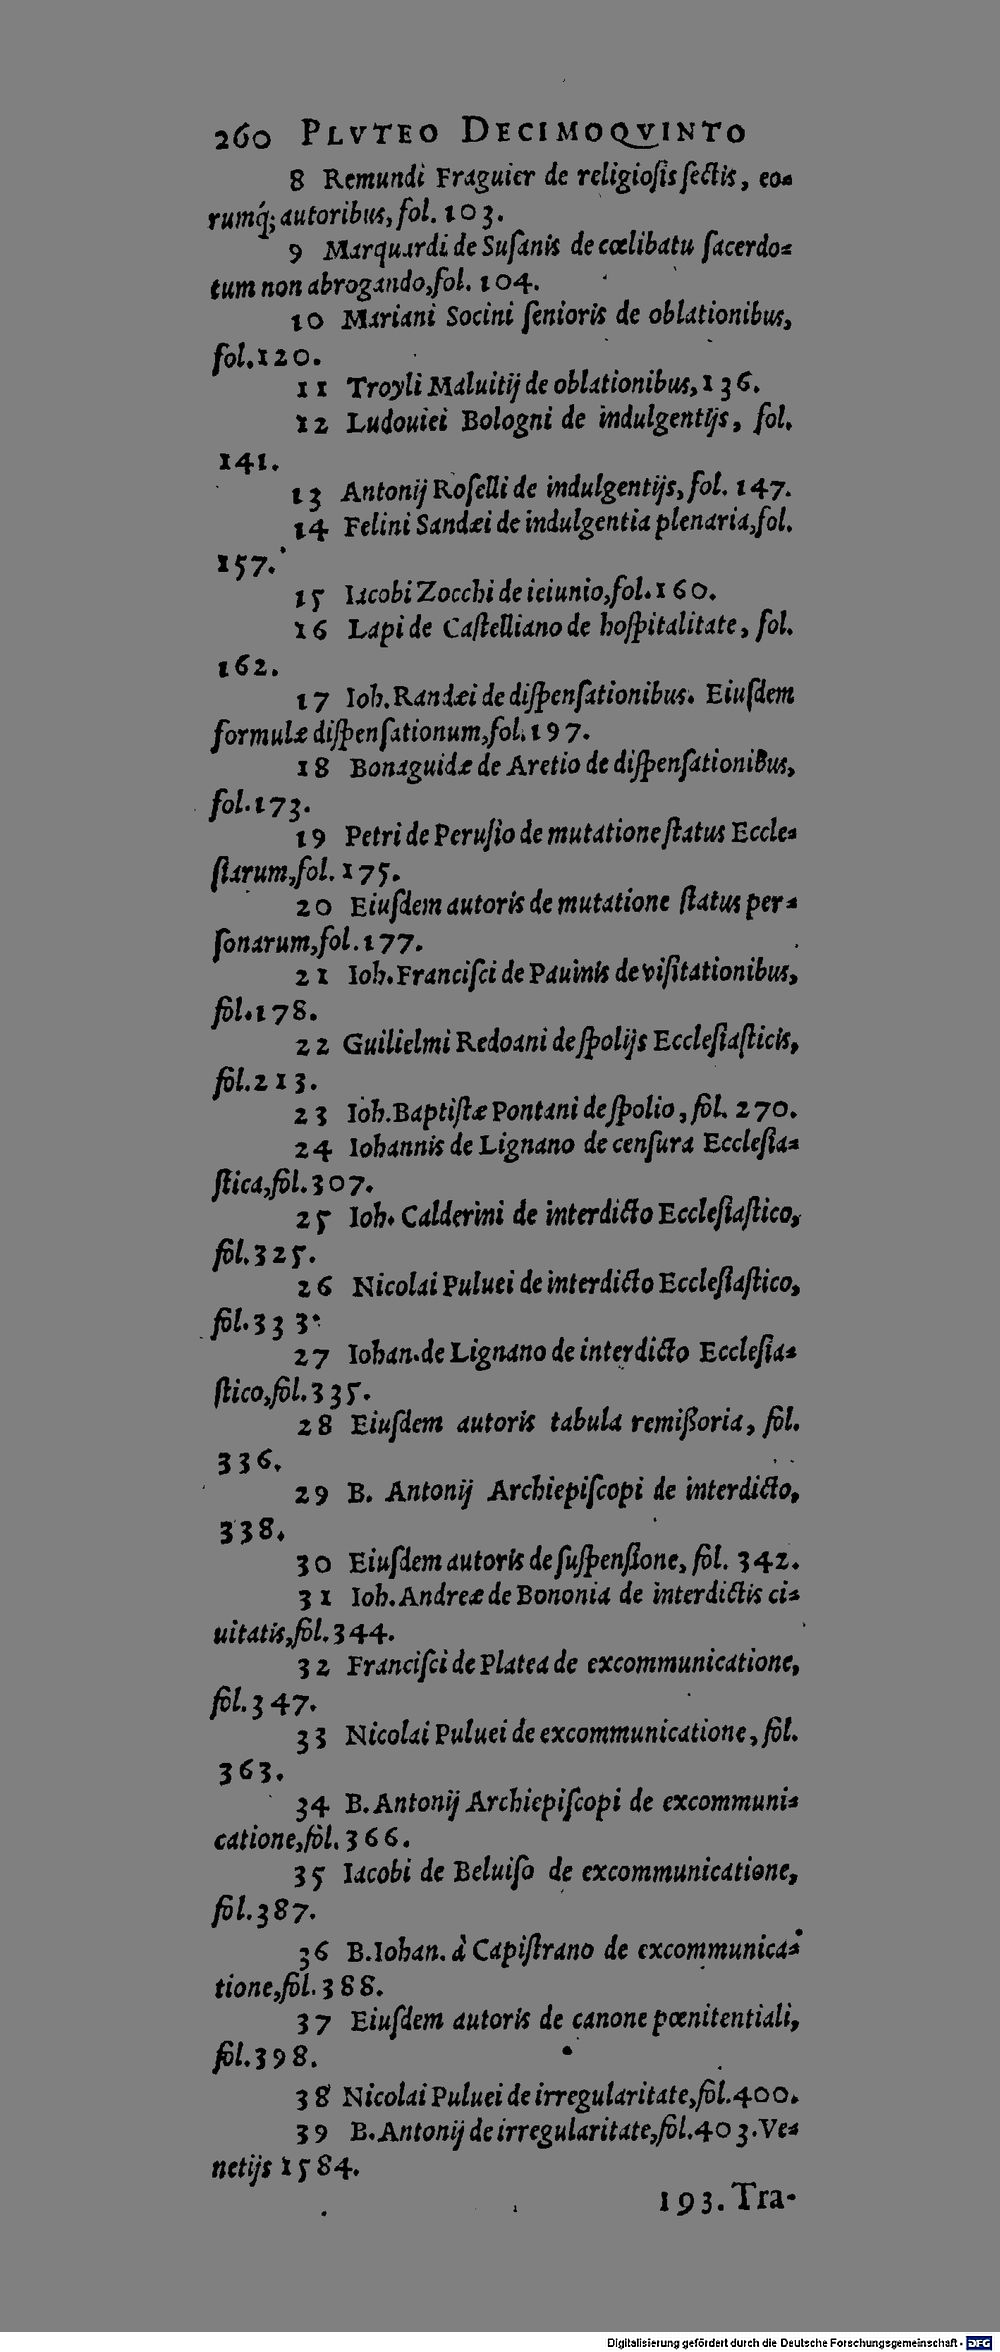 260 PLVTEO DECIMOQVINTO
8 Remundi Fraguier de religiosis sectis, eo=
rumq́; autoribus, fol. 103.
9 Marquardi de Susanis de cœlibatu sacerdo=
tum non abrogando, fol. 104.
10 Mariani Socini senioris de oblationibus,
fol. 120.
11 Troyli Maluitij de oblationibus, 136.
12 Ludouici Bologni de indulgentijs, fol.
141.
13 Antonij Roselli de indulgentijs, fol. 147.
14 Felini Sandæi de indulgentia plenaria, fol.
157.
15 Iacobi Zocchi de ieiunio, fol. 160.
16 Lapi de Castelliano de hospitalitate, fol.
162.
17 Ioh. Randæi de dispensationibus. Eiusdem
formulæ dispensationum, fol. 197.
18 Bonaguidæ de Aretio de dispensationibus,
fol. 173.
19 Petri de Perusio de mutatione status Eccle=
siarum, fol. 175.
20 Eiusdem autoris de mutatione status per=
sonarum, fol. 177.
21 Ioh. Francisci de Pauinis de visitationibus,
fol. 178.
22 Guilielmi Redoani de spolijs Ecclesiasticis,
fol. 213.
23 Ioh. Baptistæ Pontani de spolio, fol. 270.
24 Iohannis de Lignano de censura Ecclesia=
stica, fol. 307.
25 Ioh. Calderini de interdicto Ecclesiastico,
fol. 325.
26 Nicolai Puluei de interdicto Ecclesiastico,
fol. 333.
27 Iohan. de Lignano de interdicto Ecclesia=
stico, fol. 335.
28 Eiusdem autoris tabula remißoria, fol.
336.
29 B. Antonij Archiepiscopi de interdicto,
338.
30 Eiusdem autoris de suspensione, fol. 342.
31 Ioh. Andreæ de Bononia de interdictis ci=
uitatis, fol. 344.
32 Francisci de Platea de excommunicatione,
fol. 347.
33 Nicolai Puluei de excommunicatione, fol.
363.
34 B. Antonij Archiepiscopi de excommuni=
catione, fol. 366.
35 Iacobi de Beluiso de excommunicatione,
fol. 387.
36 B. Iohan. à Capistrano de excommunica=
tione, fol. 388.
37 Eiusdem autoris de canone pœnitentiali,
fol. 398.
38 Nicolai Puluei de irregularitate, fol. 400.
39 B. Antonij de irregularitate, fol. 403. Ve=
netijs 1584.
193. Tra-
Digitalisierung gefördert durch die Deutsche Forschungsgemeinschaft - DFG